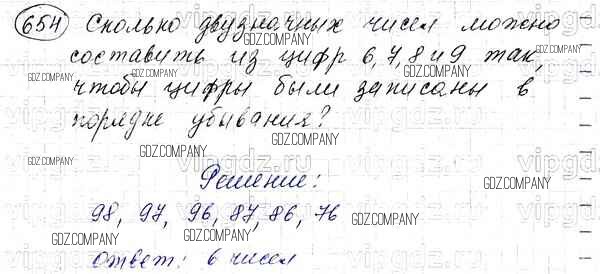 654 Сколько двузначных чисел можно
составить из цифр 6, 7, 8 и 9 так,
чтобы цифры были записаны в
порядке убывания?
Решение:
98, 97, 96, 87, 86, 76
ответ: 6 чисел
GDZ.COMPANY
GDZ.COMPANY
GDZ.COMPANY
GDZ.COMPANY
GDZ.COMPANY
GDZ.COMPANY
GDZ.COMPANY
GDZ.COMPANY
GDZ.COMPANY
GDZ.COMPANY
GDZ.COMPANY
vipgdz.ru